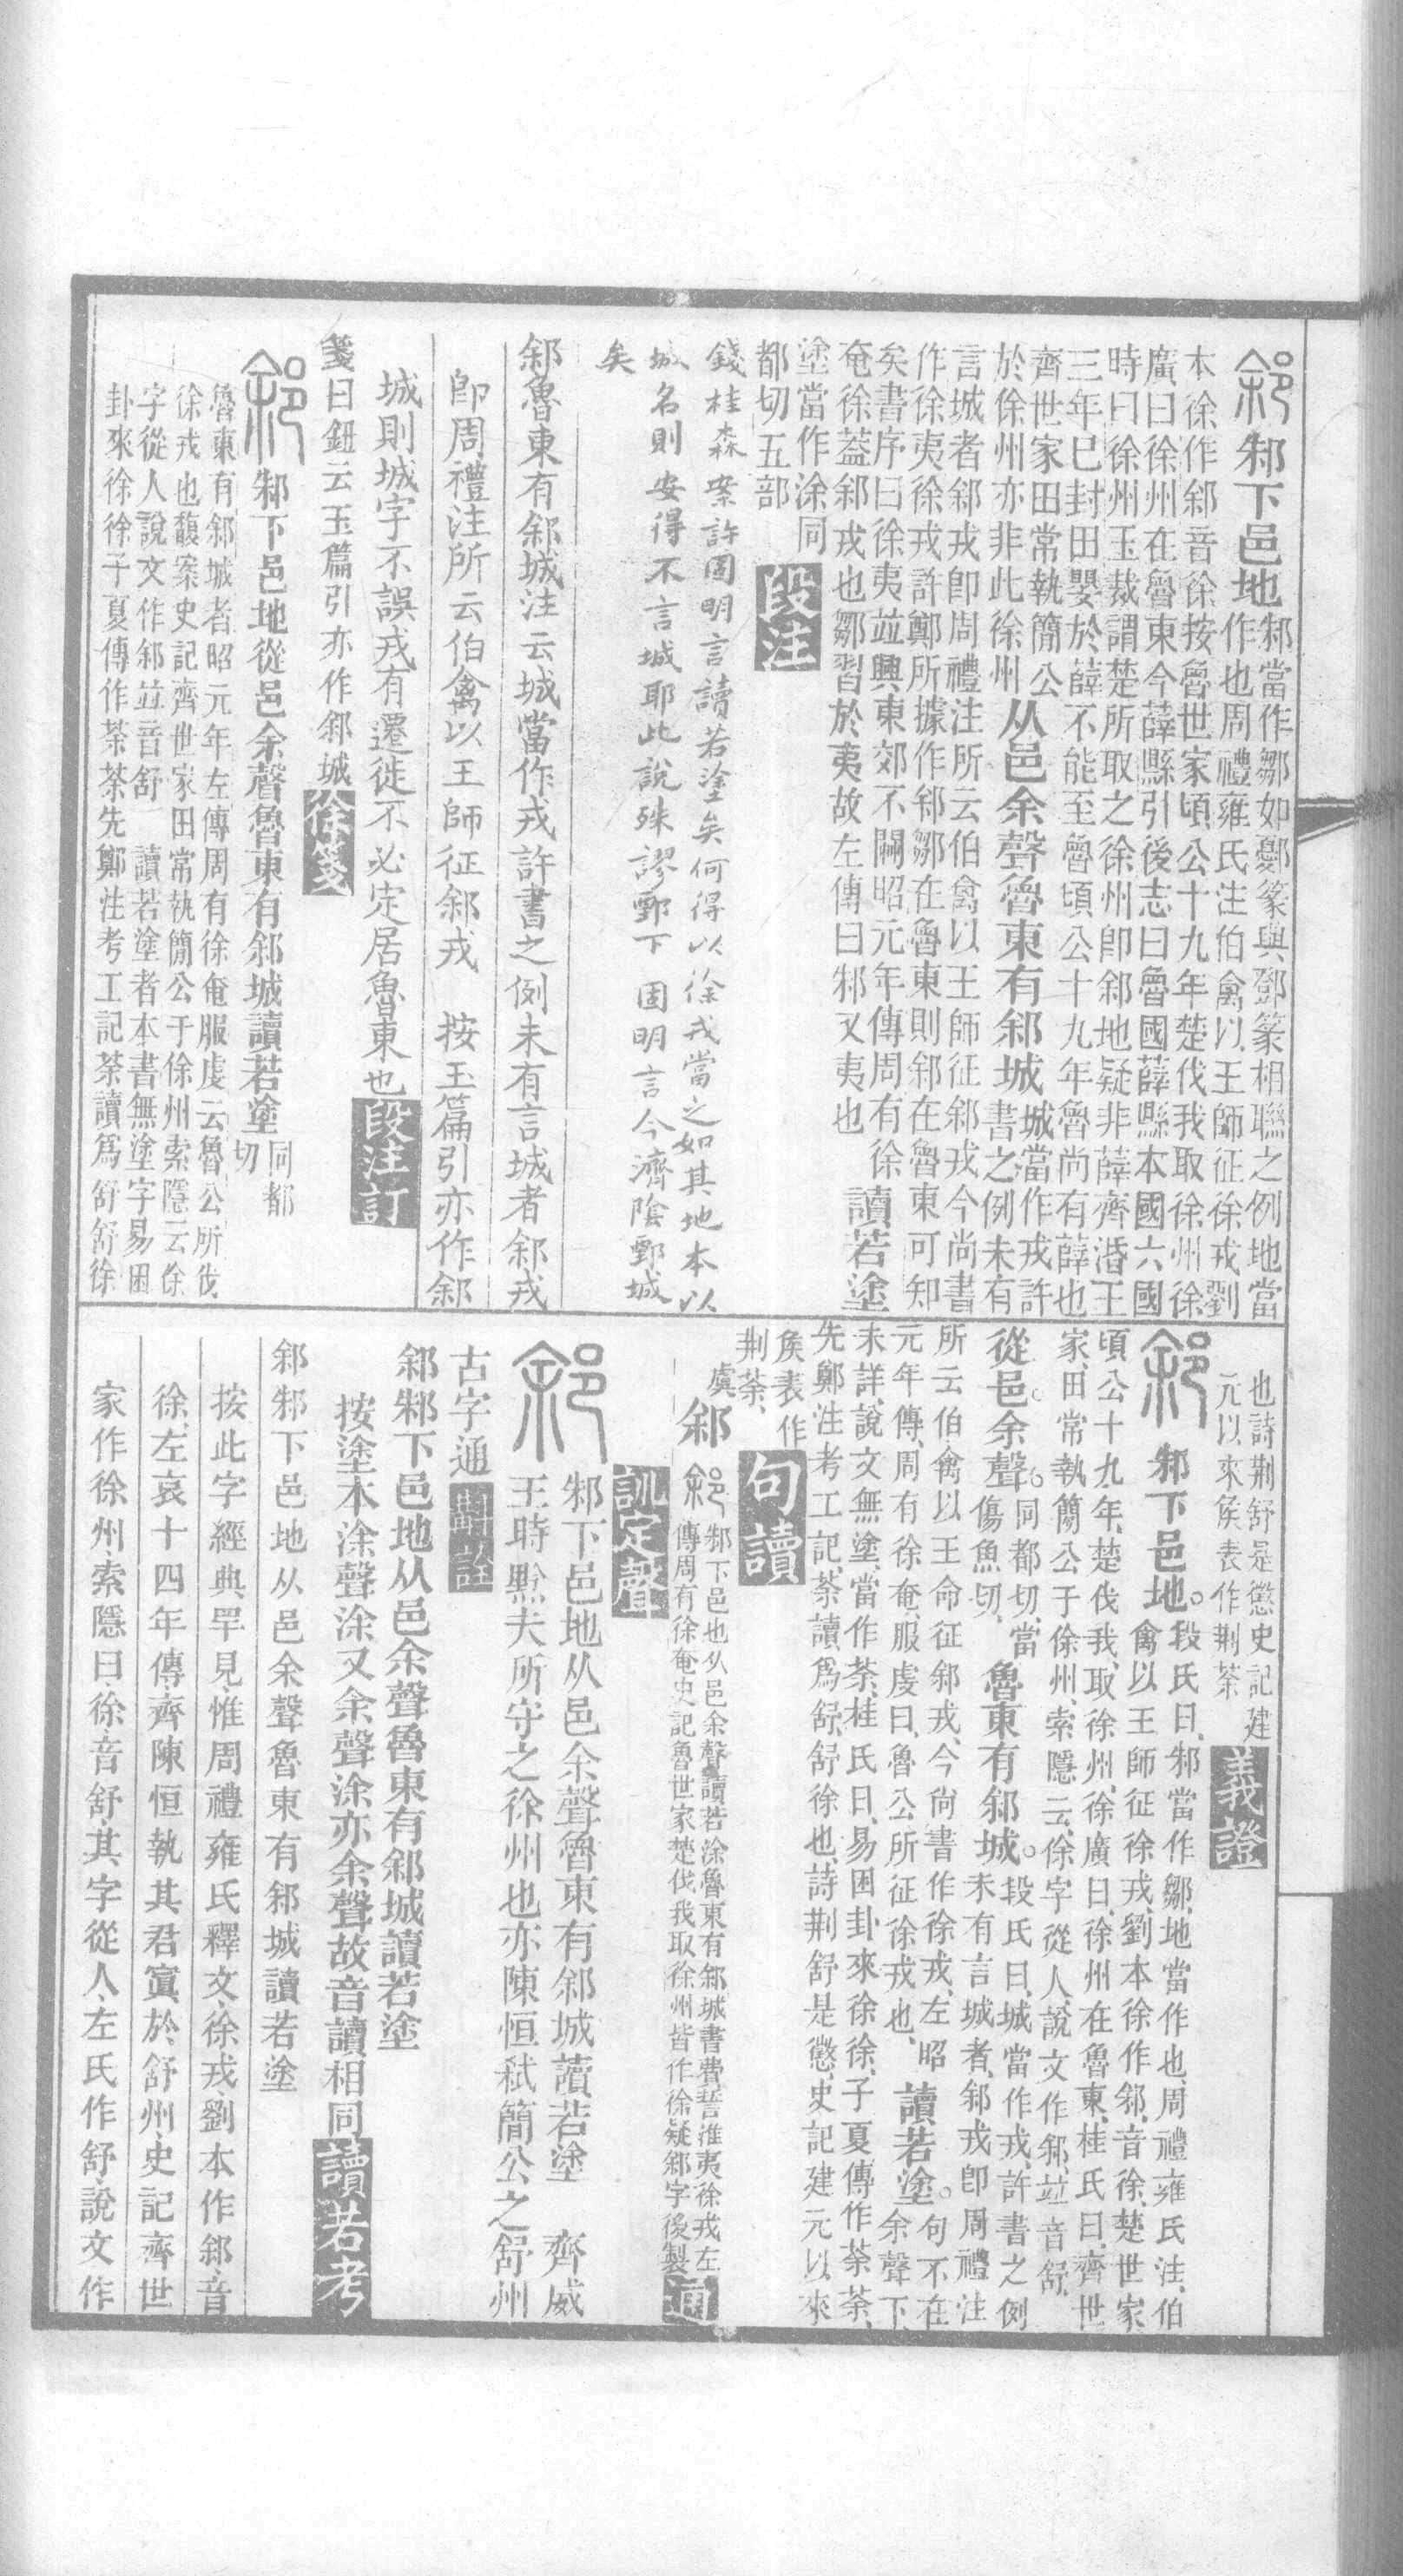 䣄邾下邑地
邾當作鄒如㔶篆與鄧篆相聯之例地當
作也周禮雍氏注伯禽以王師征徐戎劉
本徐作䣄音徐按魯世家頃公十九年楚伐我取徐州徐
廣曰徐州在魯東今薛縣引後志曰魯國薛縣本國六國
時曰徐州玉裁謂楚所取之徐州卽䣄地疑非薛齊湣王
三年巳封田嬰於薛不能至魯頃公十九年魯尚有薛也
齊世家田常執簡公
於徐州亦非此徐州
从邑余聲魯東有䣄城
城當作戎許
書之例未有
言城者䣄戎卽周禮注所云伯禽以王師征䣄戎今尚書
作徐夷徐戎許鄭所據作䣄鄒在魯東則䣄在魯東可知
矣書序曰徐夷並興東郊不闢昭元年傳周有徐
奄徐蓋䣄戎也鄒習於夷故左傳曰邾又夷也
讀若塗
塗當作涂同
都切五部
段注
錢桂森案許固明言讀若塗矣何得以徐戎當之如其地本以
城名則安得不言城耶此說殊謬鄄下固明言今濟陰鄄城
矣
䣄魯東有䣄城注云城當作戎許書之例未有言城者䣄戎
卽周禮注所云伯禽以王師征䣄戎 按玉篇引亦作䣄
城則城字不誤戎有遷徙不必定居魯東也
段注訂
箋曰鈕云玉篇引亦作䣄城
徐箋
䣄邾下邑地從邑余聲魯東有䣄城讀若塗
同都
切
魯東有䣄城者昭元年左傳周有徐奄服虔云魯公所伐
徐戎也馥案史記齊世家田常執簡公于徐州索隱云徐
字從人說文作䣄並音舒 讀若塗者本書無塗字易困
卦來徐徐子夏傳作荼荼先鄭注考工記荼讀爲舒舒徐
也詩荆舒是懲史記建
元以來矦表作荆荼
義證
䣄邾下邑地。
段氏曰、邾當作鄒、地當作也、周禮雍氏注、伯
禽以王師征徐戎、劉本徐作䣄、音徐、楚世家
頃公十九年、楚伐我、取徐州、徐廣曰、徐州在魯東、桂氏曰、齊世
家、田常執簡公于徐州、索隱云、徐字從人、說文作䣄、並音舒、
從邑。余聲。
同都切、當
傷魚切、
魯東有䣄城。
段氏曰、城當作戎、許書之例
未有言城者、䣄戎卽周禮注
所云伯禽以王命征䣄戎、今尚書作徐戎、左昭
元年傳、周有徐奄、服虔曰、魯公所征徐戎也、
讀若塗。
句不在
余聲下、
未詳、說文無塗、當作荼、桂氏曰、易困卦來徐徐、子夏傳作荼荼、
先鄭注考工記、荼讀爲舒、舒徐也、詩荆舒是懲、史記建元以來
矦表作
荆荼、
句讀
虞䣄
䣄邾下邑也从邑余聲讀若涂魯東有䣄城書費誓淮夷徐戎左
傳周有徐奄史記魯世家楚伐我取徐州皆作徐疑䣄字後製
通訓定聲
䣄邾下邑地从邑余聲魯東有䣄城讀若塗 齊威
王時黔夫所守之徐州也亦陳恒弒簡公之舒州
古字通
斠詮
䣄邾下邑地从邑余聲魯東有䣄城讀若塗
按塗本涂聲涂又余聲涂亦余聲故音讀相同
讀若考
䣄邾下邑地从邑余聲魯東有䣄城讀若塗
按此字經典罕見、惟周禮雍氏釋文、徐戎、劉本作䣄、音
徐、左哀十四年傳、齊陳恒執其君寘於、舒州、史記齊世
家作徐州索隱曰、徐音舒、其字從人、左氏作舒、說文作